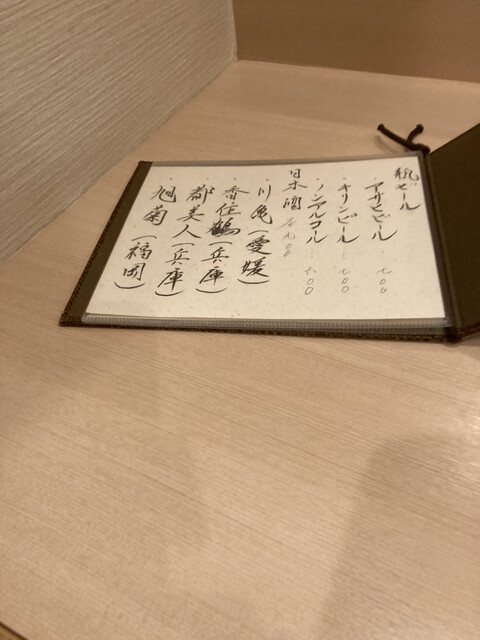 瓶ビール
アサヒビール … 七〇〇
キリンビール … 七〇〇
ノンアルコール … 六〇〇
日本酒 各九〇〇
川亀(愛媛)
香住鶴(兵庫)
都美人(兵庫)
旭菊(福岡)